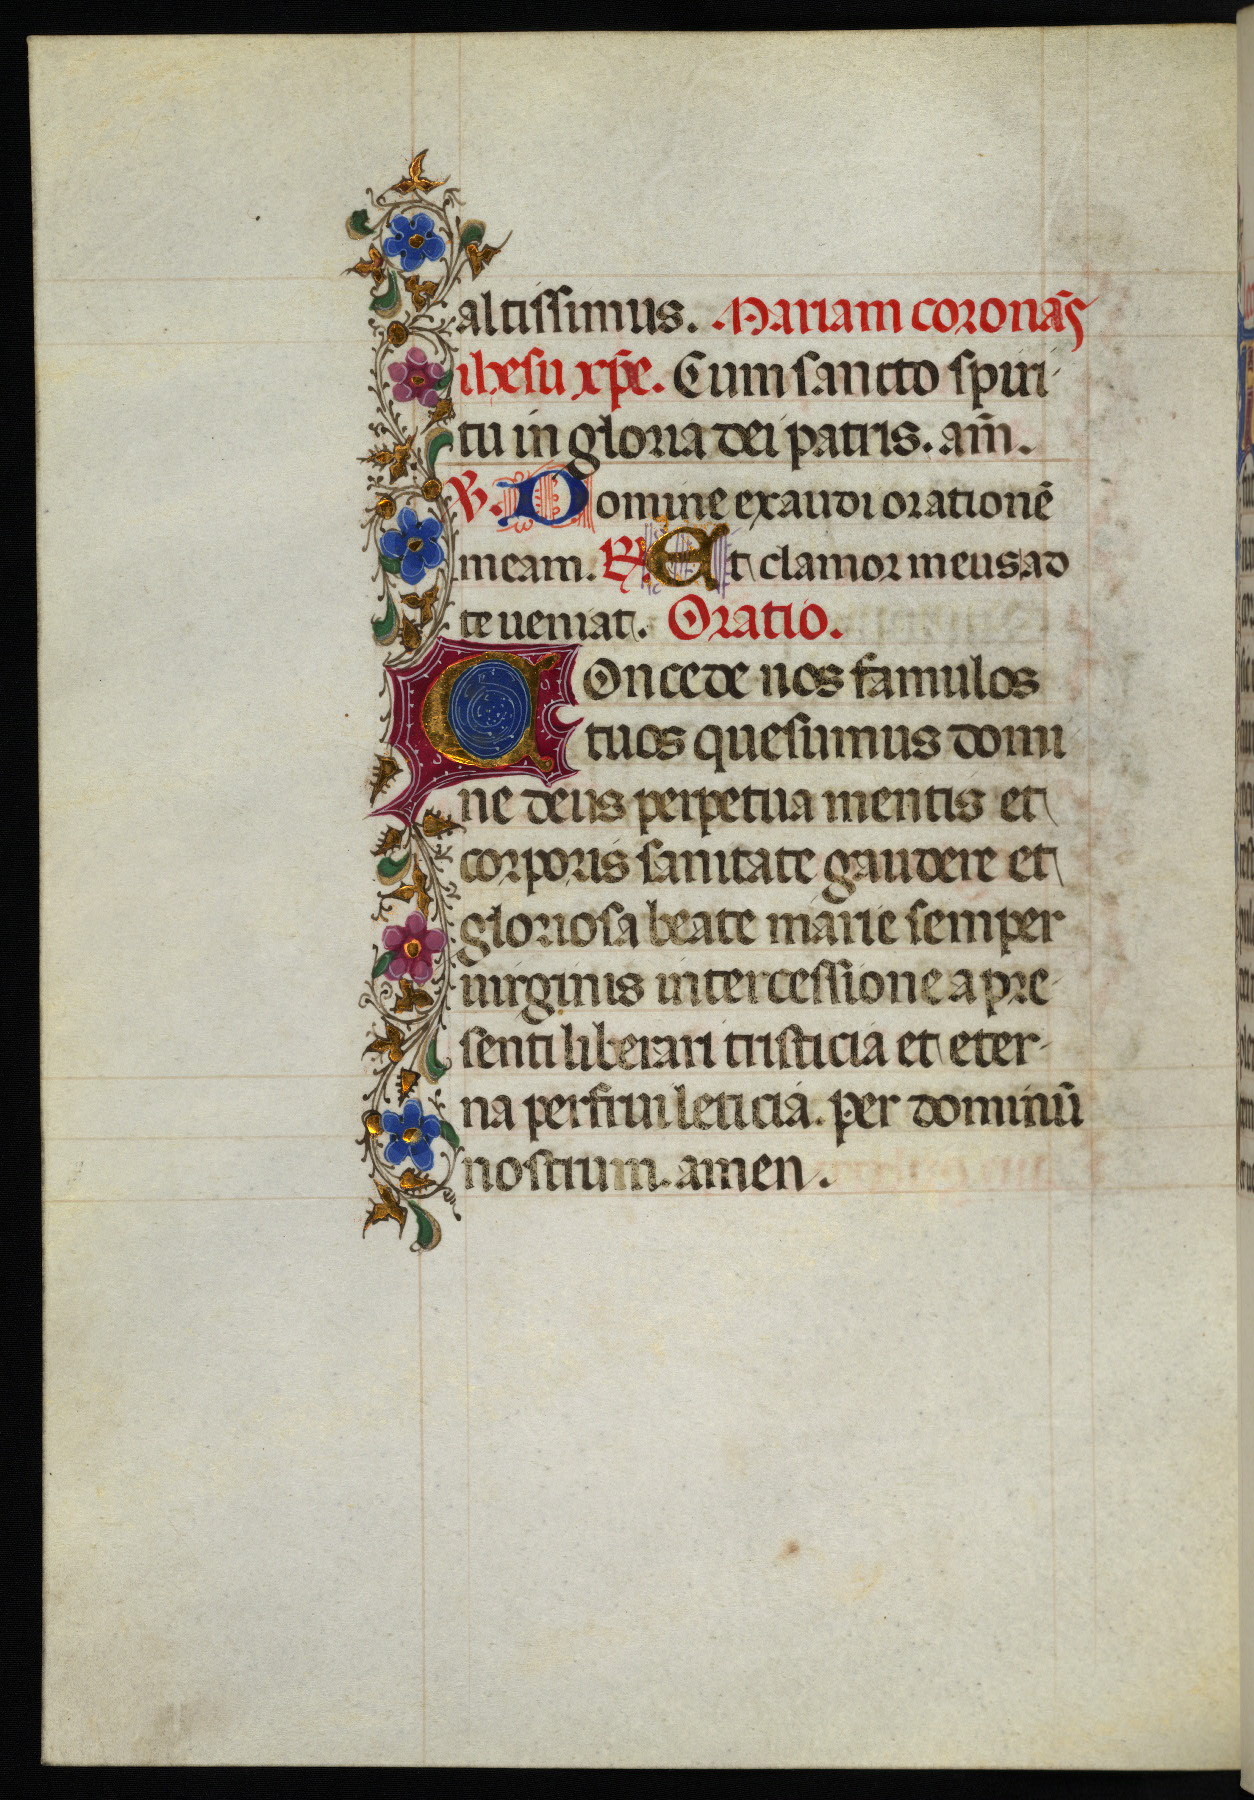 altissimus. Mariam coronãs
ihesu xp̃e. Cum sancto spiri
tu in gloria dei patris. am̃.
V. Domine exaudi orationẽ
meam. R. Et clamor meus ad
te ueniat. Oratio.
Concede nos famulos
tuos quesumus domi
ne deus perpetua mentis et
corporis sanitate gaudere et
gloriosa beate marie semper
uirginis intercessione a pre
senti liberari tristicia et eter
na perfrui leticia. per dominũ
nostrum. amen.